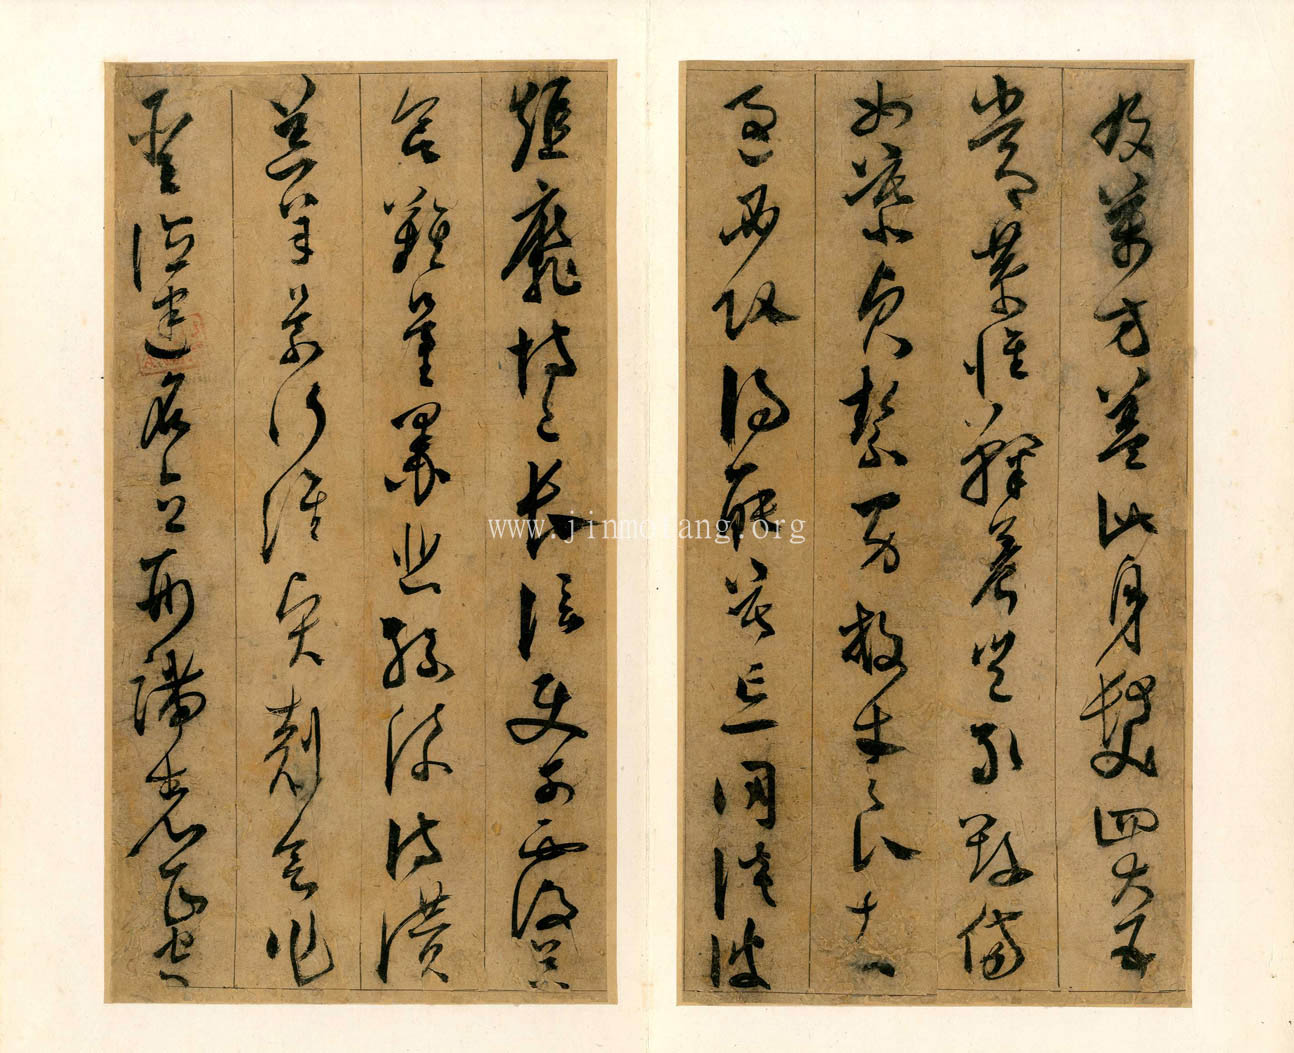 及萬方蓋此身髮四大五
常恭惟鞠養豈敢毀傷
女慕貞絜男效才良知
過必改得能莫忘罔談彼
短靡恃己長信使可覆器
欲難量墨悲絲染詩讚
羔羊景行維賢剋念作
聖德建名立形端表正空
www.jinmotang.org